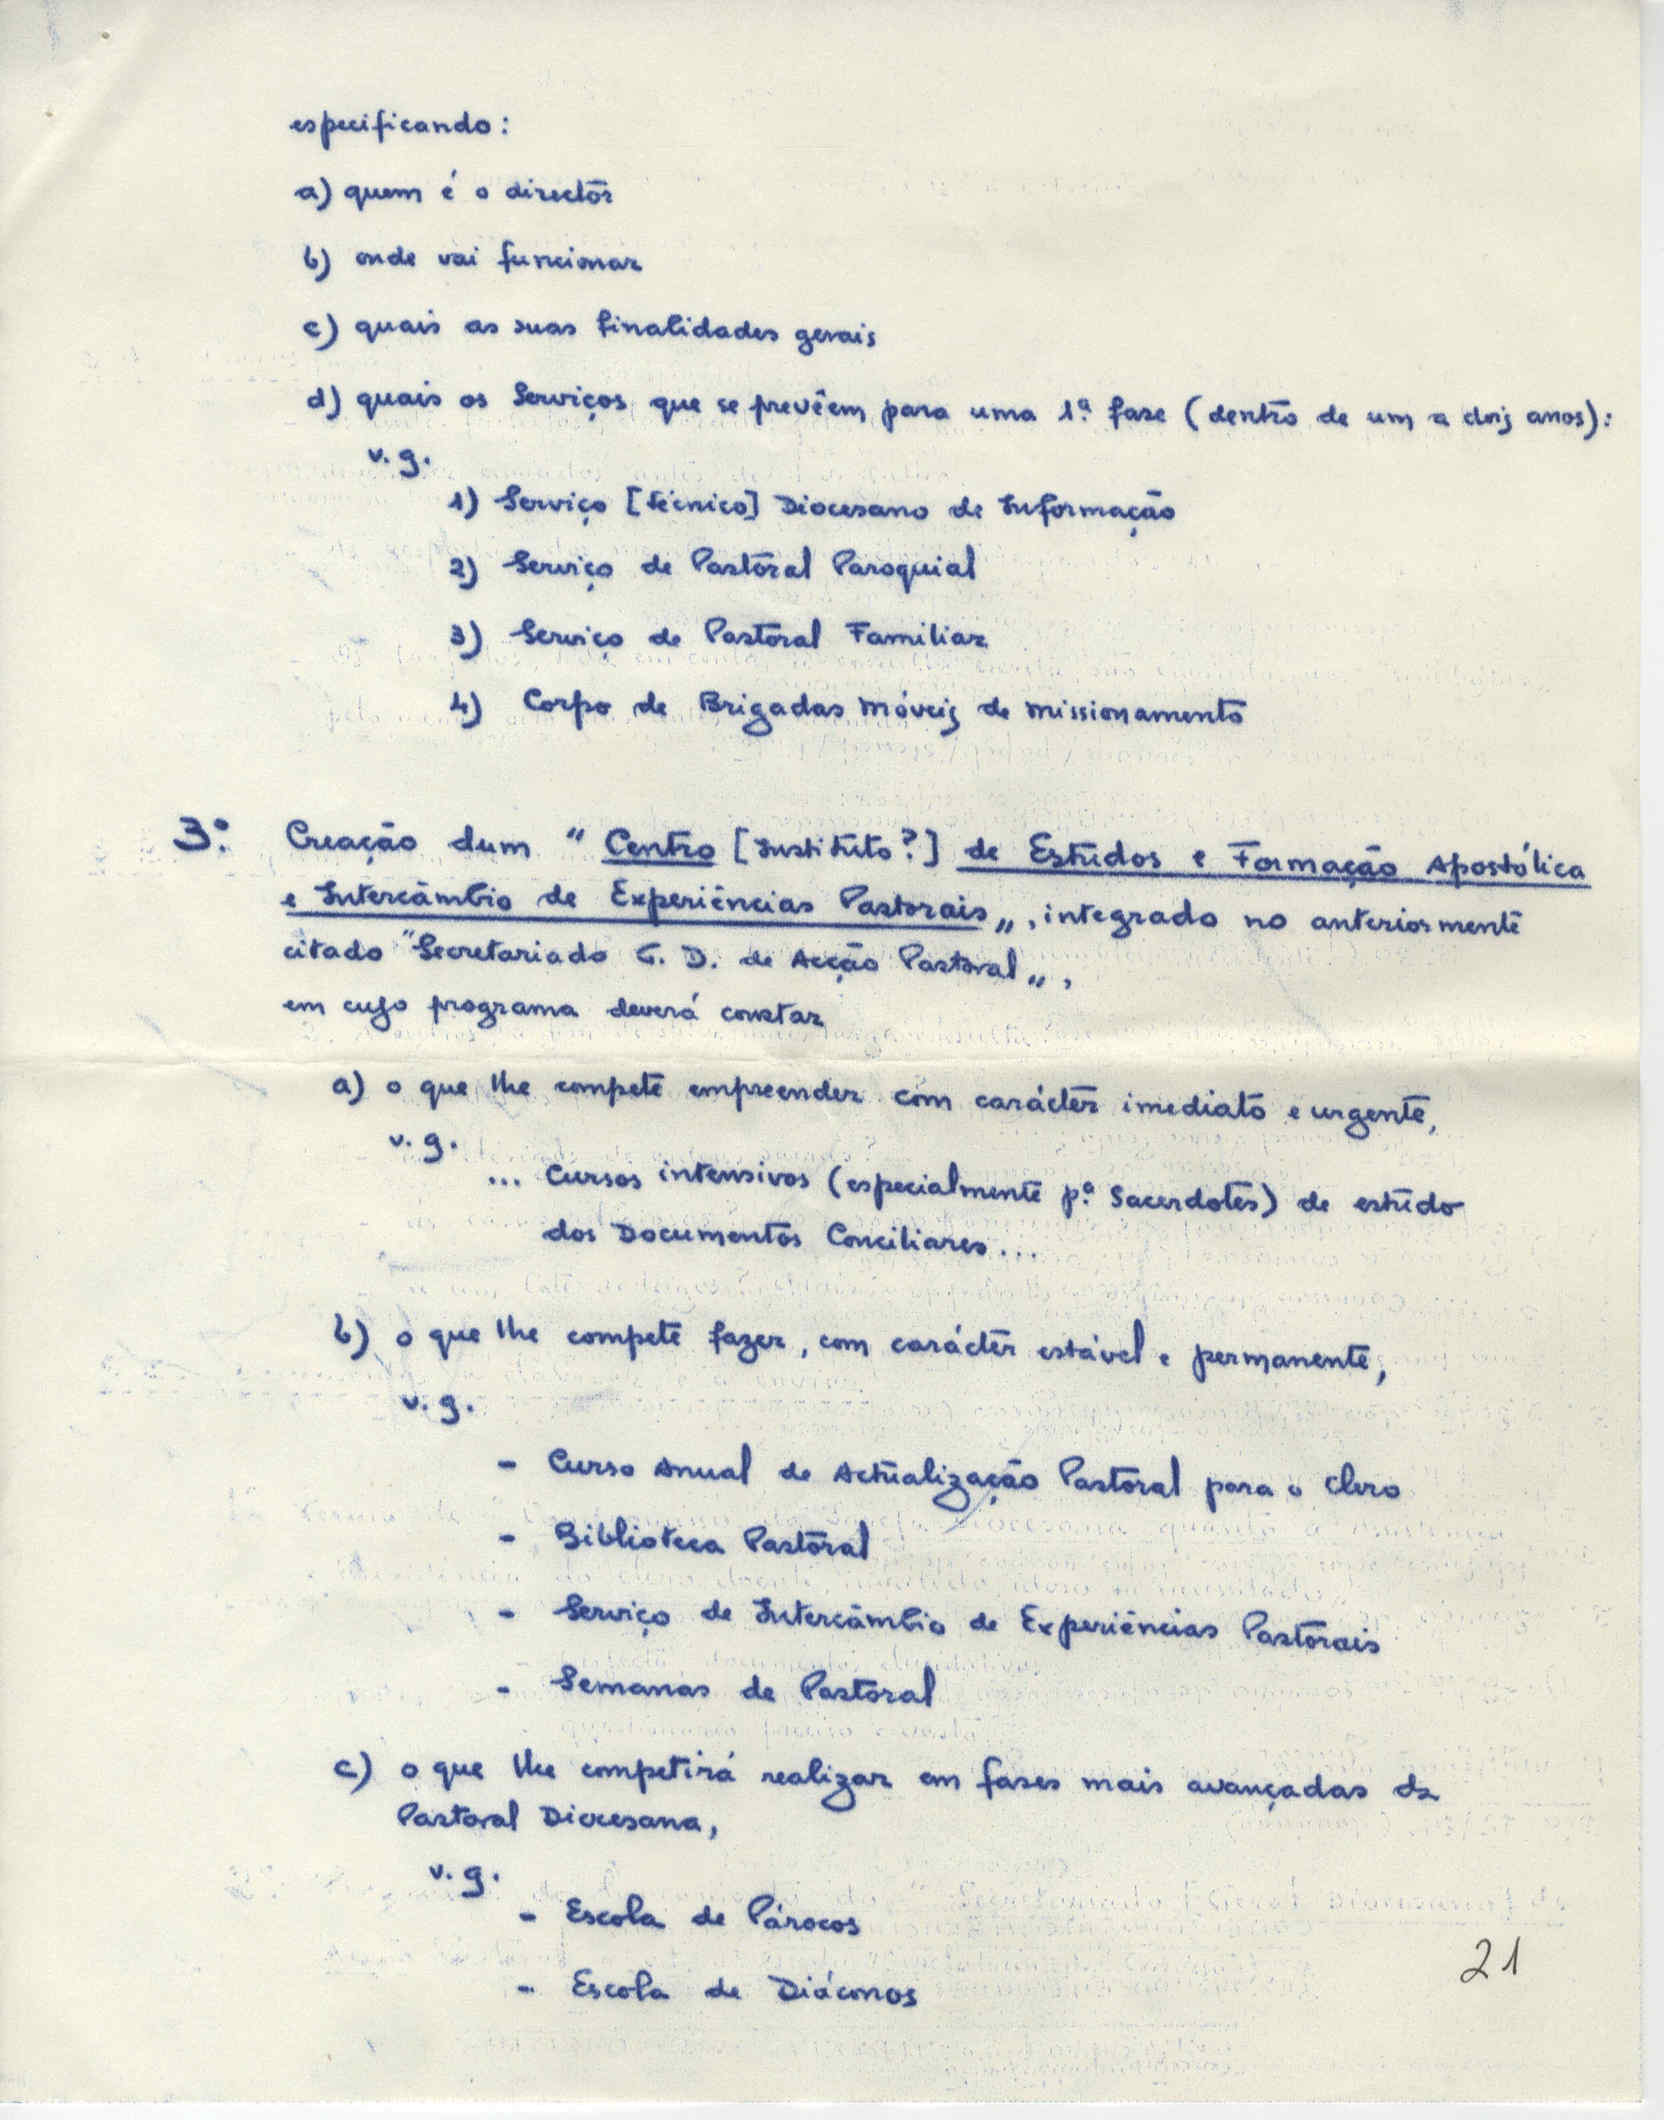 especificando:
a) quem é o director
b) onde vai funcionar
c) quais as suas finalidades gerais
d) quais os Serviços que se prevêem para uma 1ª fase (dentro de um a dois anos):
v. g.
1) Serviço [técnico] Diocesano de Informação
2) Serviço de Pastoral Paroquial
3) Serviço de Pastoral Familiar
4) Corpo de Brigadas Móveis de Missionamento
3º Creação dum "Centro [Instituto?] de Estudos e Formação Apostólica
e Intercâmbio de Experiências Pastorais", integrado no anteriormente
citado "Secretariado G. D. de Acção Pastoral",
em cujo programa deverá constar
a) o que lhe compete empreender com carácter imediato e urgente,
v. g.
... Cursos intensivos (especialmente pª Sacerdotes) de estudo
dos Documentos Conciliares...
b) o que lhe compete fazer, com carácter estável e permanente,
v. g.
- Curso Anual de Actualização Pastoral para o Clero
- Biblioteca Pastoral
- Serviço de Intercâmbio de Experiências Pastorais
- Semanas de Pastoral
c) o que lhe competirá realizar em fases mais avançadas da
Pastoral Diocesana,
v. g.
- Escola de Párocos
- Escola de Diáconos
21